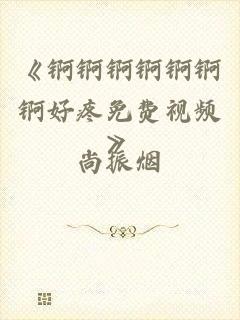 《锕锕锕锕锕锕
锕好疼免费视频
》
尚振烟